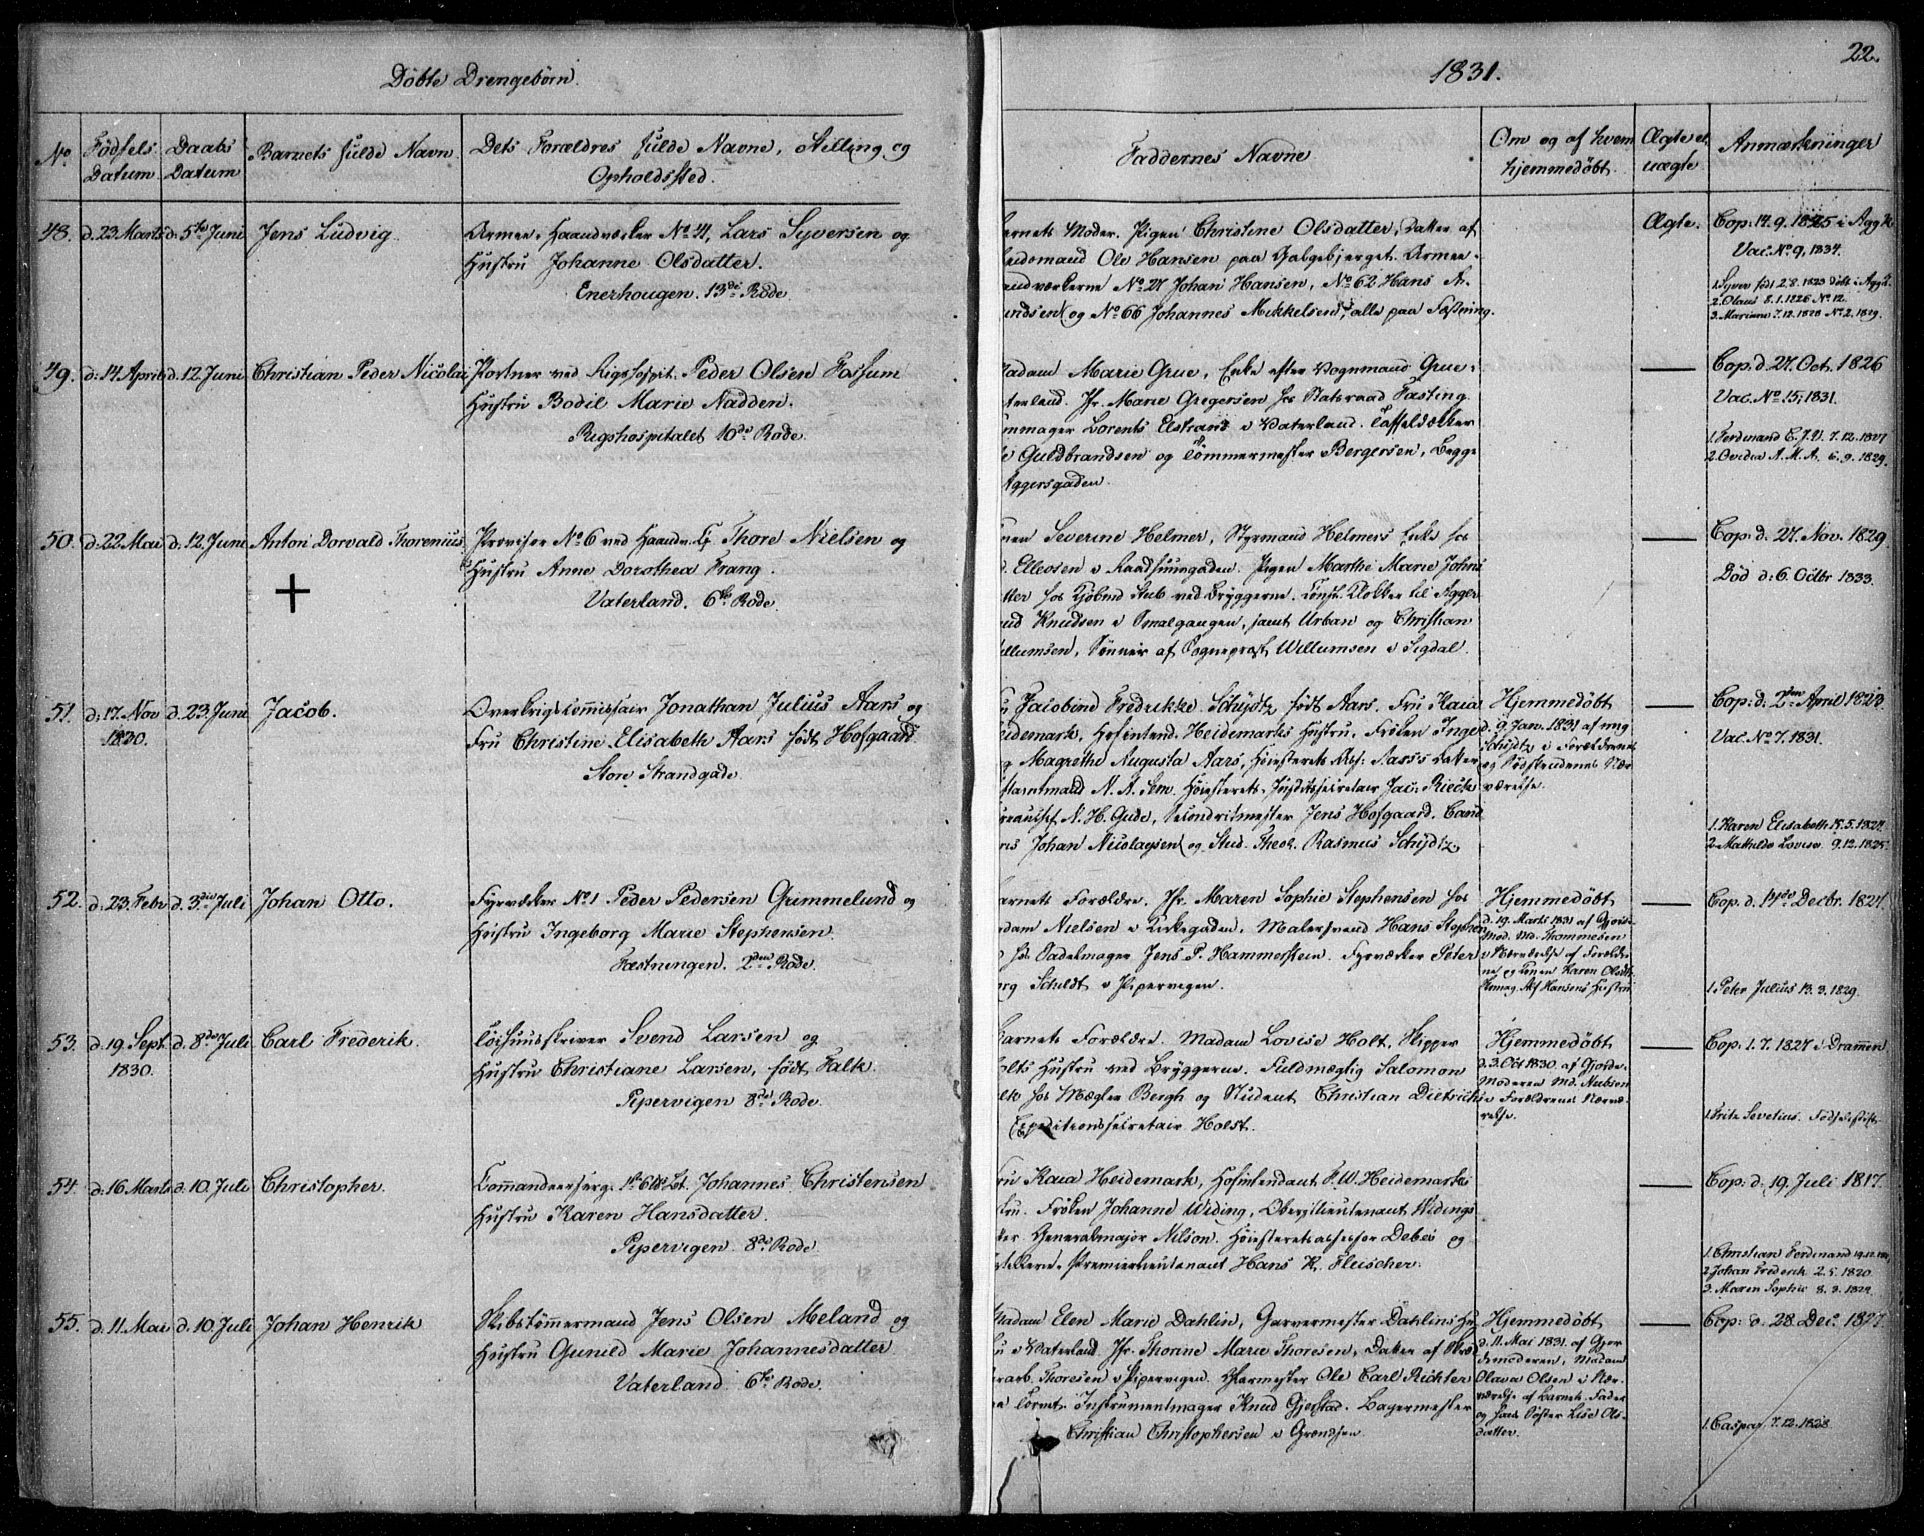 22.
Døbte Drengebørn.
1831.
No
Fødsels Datum
Daabs Datum
Barnets fulde Navn.
Dets Forældres fulde Navne, Stilling og
Opholdssted.
Faddernes Navne
Om og af hvem
hjemmedøbt.
Ægte el.
uægte
Anmærkninger
48. d. 23 Marts d. 5te Juni Jens Ludvig.
Armee-Haandværker No 41, Lars Syversen og
Hustru Johanne Olsdatter.
Enerhougen. 13de Rode
Moder. Pigen Christine Olsdatter, Datter af
Ole Hansen paa Galgebjerget. Armee-
No 27 Johan Hansen, No 62 Hans A-
og No 66 Johannes Mikkelsen, alle paa Fæstning.
Ægte.
Cop: 14. 9. 1825 i Agg.K
Vac. No 9, 1834.
1. Syver født 2. 8. 1823 døbt i Agg.K.
2. Olaus 8. 1. 1826 No 12.
3. Mariane 7. 12. 1828 No 2. 1829.
49. d: 14 April d. 12 Juni Christian Peder Nicolai
Portner ved Rigshospit. Peder Olsen Fossum
Hustru Bodil Marie Nadden.
Rigshospitalet 10de Rode.
Marie Grue, Enke efter Vognmand Grue i
Jfr. Marie Gregersen hos Statsraad Fasting
Lorents Elstrand i Vaterland. Taffeldækker
Guldbrandsen og Tømmermester Bergersen, Begge
Aggersgaden.
Cop. d. 27. Oct. 1826
Vac. No. 15, 1831.
1. Ferdinand C. J. V. 7. 12. 1827
2. Ovidia A. M. A. 6. 9. 1829.
50. d. 22 Mai d. 12. Juni Anton Dorvald Thorenius.
Provisor No 6 ved Haandv. C. Thore Nielsen og
Hustru Anne Dorothea Frang.
Vaterland. 6te Rode.
Severine Helmer, Styrmand Helmers Enke hos
Ellevsen i Raadhuusgaden. Pigen Marthe Marie Johns
hos Kjøbmd Stub ved Bryggerne. Const. Klokker til Agger
Knudsen i Smalgangen, samt Urban og Christian
Sønner af Sognepræst Willumsen i Sigdal.
Cop: d: 27. Nov. 1829.
Død d: 6. Octbr 1833.
51. d: 17. Nov 1830. d. 23. Juni Jacob.
Overkrigscommissair Jonathan Julius Aars og
Fru Christine Elisabeth Aars født Hofgaard
Store Strandgade.
Jacobine Fredrikke Schydtz født Aars. Fru Kaia
Hofintend. Heidemarks Hustru. Frøken Inge
Magrethe Augusta Aars, Høiesterets Ass: Aars's Datter
N. A. Sem. Høiesterets-Justitssecretair Jac: Rieck
N. H. Gude, Secondritmester Jens Hofgaard. Cand
Johan Nicolaysen og Stud. Theol. Rasmus Schydtz
Hjemmedøbt
d. 9. Jan. 1831 af mig
Schydtz i Forældrenes
og Nær-
værelse.
Cop: d: 2den April 1823
Vac. No 7. 1831.
1. Karen Elisabeth 15. 5. 1824.
2. Mathilde Lovise 9. 12. 1825.
52. d: 23. Febr d. 3die Juli Johan Otto.
Fyrværker No 1 Peder Pedersen Grimmelund og
Hustru Ingeborg Marie Stephensen.
Fæstningen. 2den Rode.
Forældre. Jfr. Maren Sophie Stephensen hos
Nielsen i Kirkegaden. Malersvend Hans Stephen
hos Sadelmager Jens P. Hammerstein. Fyrværker Peter
Schildt i Pipervigen.
Hjemmedøbt
d. 19. Marts 1831 af Gjorde-
Mod. Md. Thommesen
i Nærværelse af Forældre-
ne og Karen Olsdt.
Hansens Hustru
Cop. d. 14de Decbr. 1827.
1. Peter Julius 13. 3. 1829.
53. d. 19. Sept. 1830. d. 8de Juli Carl Frederik.
Toihuusskriver Svend Larsen og
Hustru Christiane Larsen, født Falk.
Pipervigen 8de Rode.
Forældre. Madam Lovise Holt, Skipper
Holts Hustru ved Bryggerne. Fuldmægtig Salomon
hos Mægler Bergh og Student Christian Dietrichs
Expeditionssecretair Holst.
Hjemmedøbt
d. 3. Oct 1830. af Gjorde-
Moderen Md. Nubsen
i Forældrenes Nærvæ-
relse.
Cop. 1. 7. 1827 i Drammen
54. d. 16 Marts d. 10. Juli Christopher.
Commandeersergt. Johannes Christensen
Hustru Karen Hansdatter.
Pipervigen. 8de Rode.
Kaia Heidemark, Hofintendant F. W. Heidemarks
Frøken Johanne Widing, Oberstlieutenant Widings
Generalmajor Nilson. Høiesteretsassessor Debes og
Premierlieutenant Hans K. Fleischer.
Cop: d. 19. Juli 1817.
1. Christian Ferdinand
2. Johan Frederik 2. 5. 1820.
3. Maren Sophie 8. 9. 1824.
55. d. 11. Mai d. 10. Juli Johan Henrik
Skibstømmermand Jens Olsen Meland og
Hustru Gunild Marie Johannesdatter
Vaterland. 6te Rode.
Madam Elen Marie Dahlin, Garvermester Dahlins Hu-
i Vaterland. Jfr. Thorine Marie Thoresen, Datter af
Thoresen i Pipervigen. Ole Carl Richter
Instrumentmager Knud Gjestad. Bagermester
Christian Christophersen i Grændsen
Hjemmedøbt
d. 11. Mai 1831. af Gjor-
demoderen, Madam
Olava Olsen i Nær-
værelse af Barnets Fader
og hans Søster Lise Ols-
datter.
Cop: d. 28. Dec. 1827.
1. Caspar 7. 12. 1828